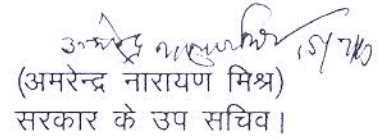 (अमरेन्द्र नारायण मिश्र)
सरकार के उप सचिव।